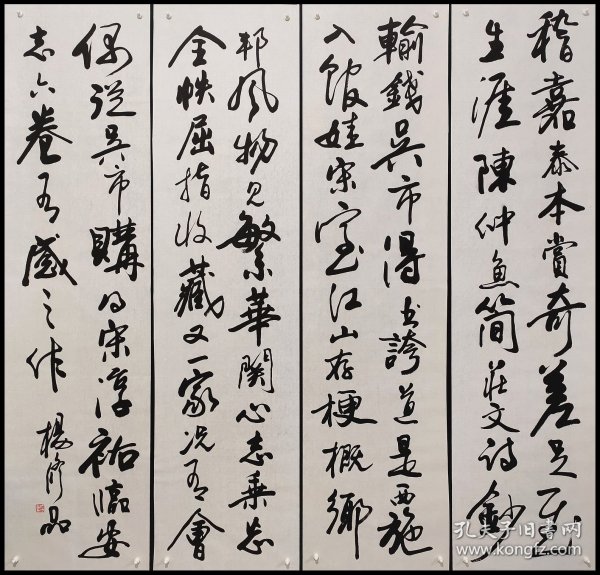 稽嘉泰本賞奇差足慰
生涯陳仲魚簡莊文詩鈔
輸錢吳市得書誇道是西施
入館娃宋室江山存梗概鄉
邦風物見繁華關心志乘忘
全帙屈指收藏又一家況有會
偶從吳市購得宋淳祐臨安
志六卷有感之作 楊修品
孔夫子旧书网
www.kongfz.com